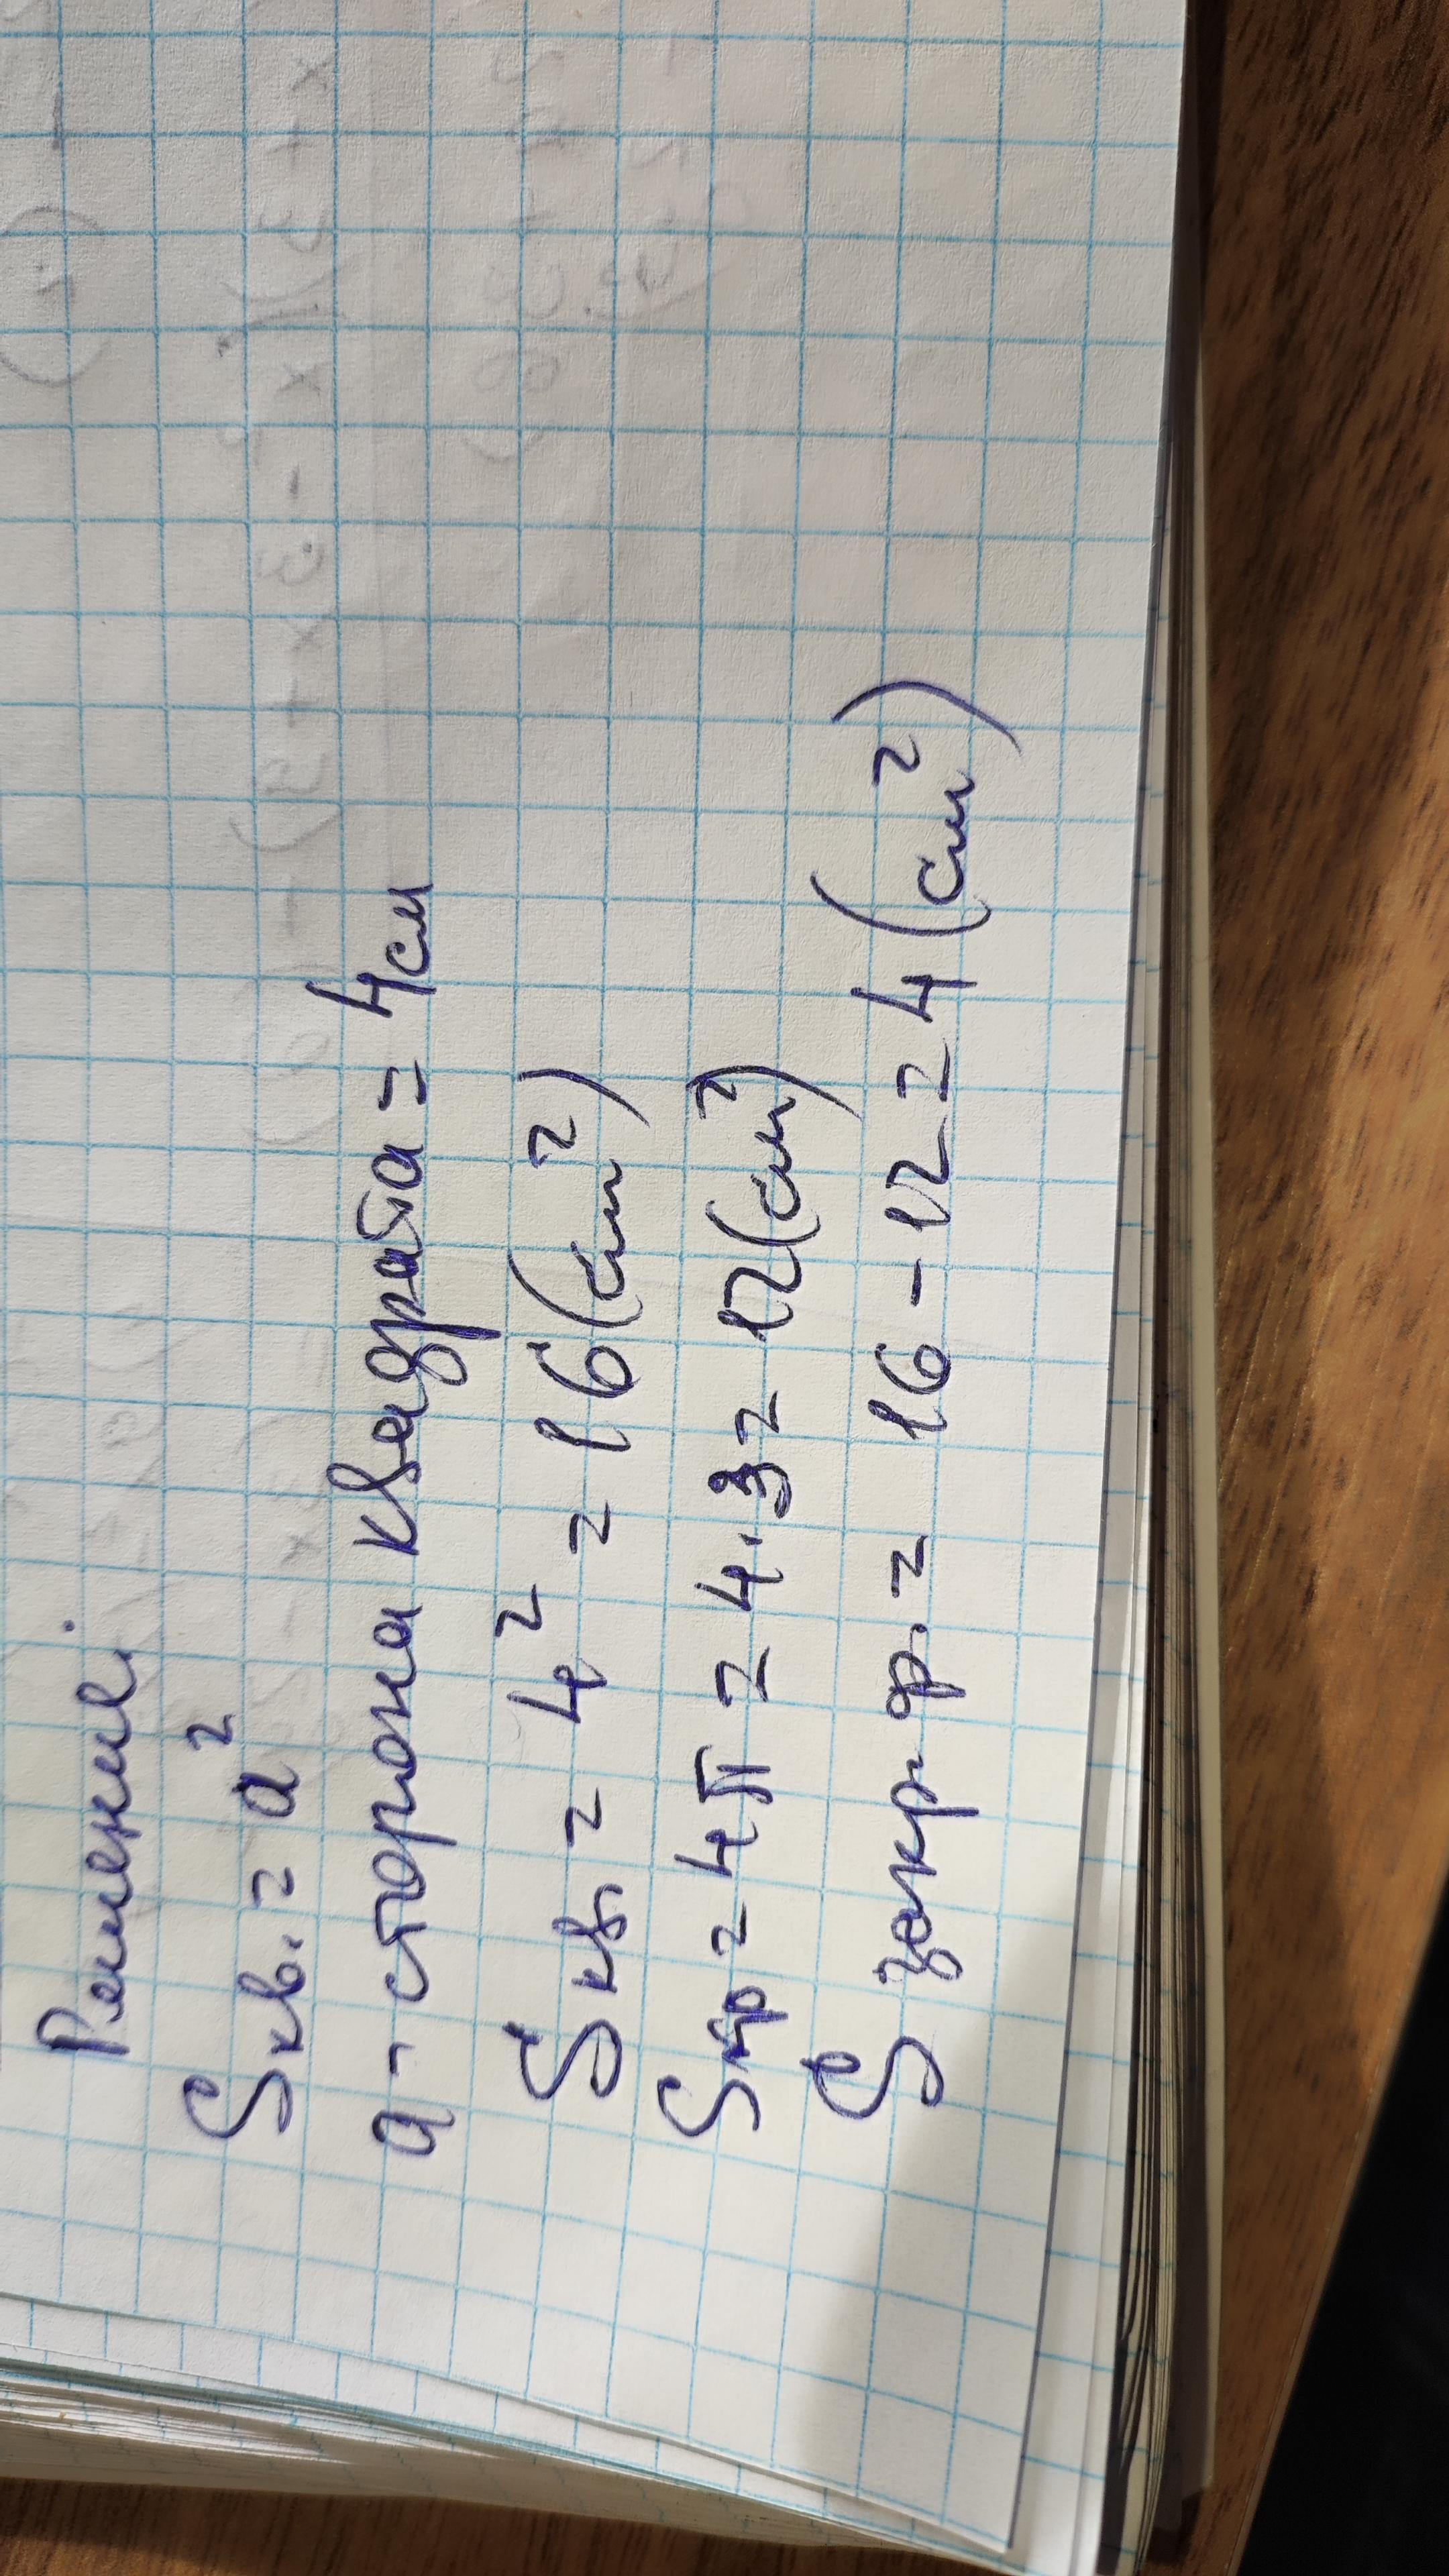 Решение.
Sкв. = a²
a - сторона квадрата = 4см
Sкв = 4² = 16(см²)
Sкр = 4π = 4·3 = 12(см²)
S закр ф. = 16 - 12 = 4(см²)